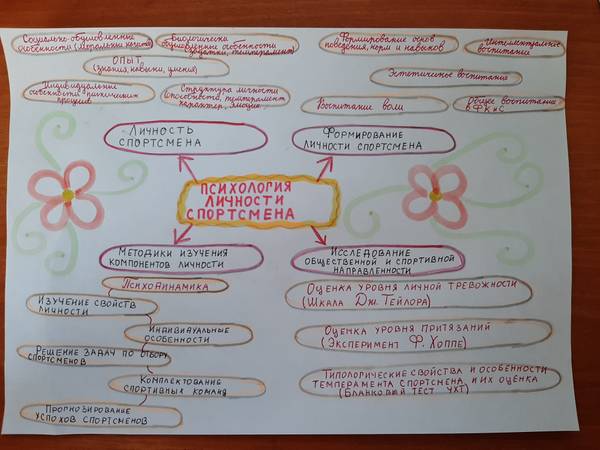 Социально-обусловленные
особенности (моральные качества)
Биологически
обусловленные особенности
(задатки, темперамент)
Формирование основ
поведения, норм и навыков
Интеллектуальное
воспитание
ОПЫТ
(знания, навыки, умения)
Эстетическое воспитание
Индивидуальные
особенности психических
процессов
Структура личности
(способности, темперамент
характер, эмоции)
Воспитание воли
Общее воспитание
в ФК и С
ЛИЧНОСТЬ
СПОРТСМЕНА
ФОРМИРОВАНИЕ
ЛИЧНОСТИ СПОРТСМЕНА
ПСИХОЛОГИЯ
ЛИЧНОСТИ
СПОРТСМЕНА
МЕТОДИКИ ИЗУЧЕНИЯ
КОМПОНЕНТОВ ЛИЧНОСТИ
ПСИХОДИНАМИКА
ИЗУЧЕНИЕ СВОЙСТВ
ЛИЧНОСТИ
ИНДИВИДУАЛЬНЫЕ
ОСОБЕННОСТИ
РЕШЕНИЕ ЗАДАЧ ПО ОТБОРУ
СПОРТСМЕНОВ
КОМПЛЕКТОВАНИЕ
СПОРТИВНЫХ КОМАНД
ПРОГНОЗИРОВАНИЕ
УСПЕХОВ СПОРТСМЕНОВ
ИССЛЕДОВАНИЕ
ОБЩЕСТВЕННОЙ И СПОРТИВНОЙ
НАПРАВЛЕННОСТИ
ОЦЕНКА УРОВНЯ ЛИЧНОЙ ТРЕВОЖНОСТИ
(ШКАЛА ДЖ. ТЕЙЛОРА)
ОЦЕНКА УРОВНЯ ПРИТЯЗАНИЙ
(ЭКСПЕРИМЕНТ Ф. ХОППЕ)
ТИПОЛОГИЧЕСКИЕ СВОЙСТВА И ОСОБЕННОСТИ
ТЕМПЕРАМЕНТА СПОРТСМЕНА И ИХ ОЦЕНКА
(БЛАНКОВЫЙ ТЕСТ УХТ)